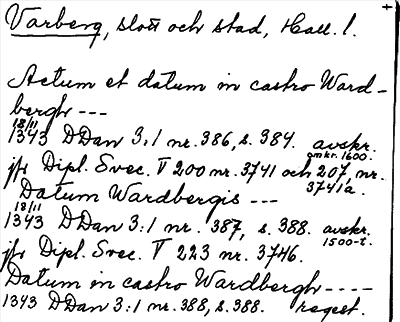 Varberg, slott och stad, Hall. l.
Actum et datum in castro Ward-
bergh ---
18/11
1343 DDan 3:1 nr. 386, s. 384. avskr.
omkr. 1600.
jfr Dipl. Svec. V 200 nr. 3741 och 207, nr.
3741a.
Datum Wardbergis ---
18/11
1343 DDan 3:1 nr. 387, s. 388. avskr.
1500-t.
jfr Dipl. Svec. V 223 nr. 3746.
Datum in castro Wardbergh ----
1343 DDan 3:1 nr. 388, s. 388. regest.